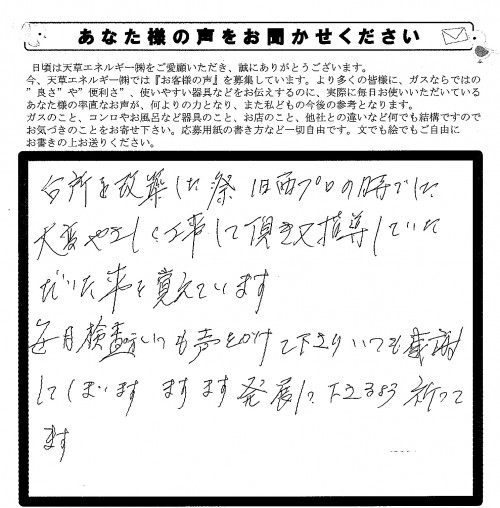 あなた様の声をお聞かせください
日頃は天草エネルギー㈱をご愛顧いただき、誠にありがとうございます。
今、天草エネルギー㈱では『お客様の声』を募集しています。より多くの皆様に、ガスならではの
”良さ”や”便利さ”、使いやすい器具などをお伝えするのに、実際に毎日お使いいただいている
あなた様の率直なお声が、何よりの力となり、また私どもの今後の参考となります。
ガスのこと、コンロやお風呂など器具のこと、お店のこと、他社との違いなど何でも結構ですので
お気づきのことをお寄せ下さい。応募用紙の書き方など一切自由です。文でも絵でもご自由に
お書きの上お送りください。
台所を改築した祭 旧西プロの時でした
大変やさしく工事して頂き又指導していた
だいた事を覚えています
毎月検査にいつも声をかけて下さり いつも感謝
してしまいます ますます発展して下さるよう 祈って
ます